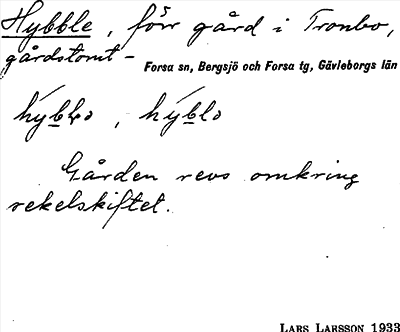 Hybble, förr gård i Tronbo,
gårdstomt –
Forsa sn, Bergsjö och Forsa tg, Gävleborgs län
hýbbo, hýblo
Gården revs omkring
sekelskiftet.
LARS LARSSON 1933